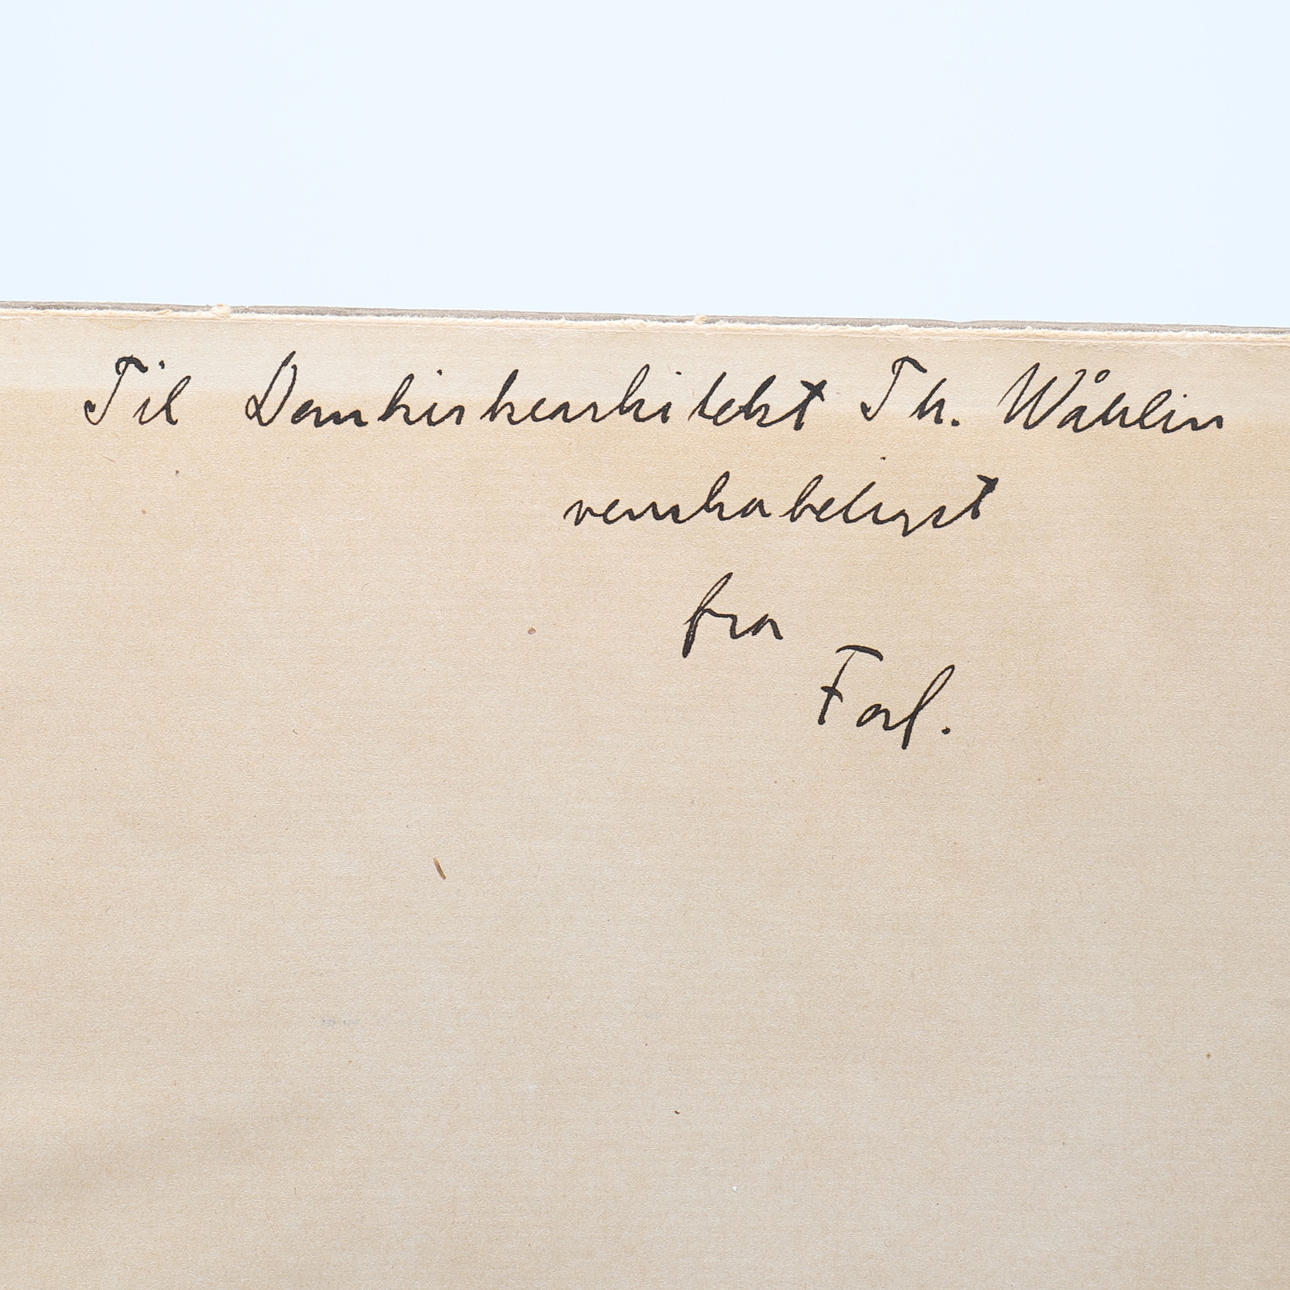 Til Domkirkearkitekt Th. Wåhlin
venskabeligst
fra
Forf.